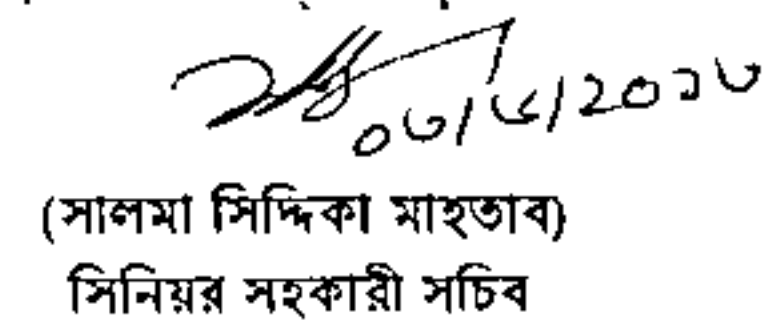 ০৩/৬/২০১৩
(সালমা সিদ্দিকা মাহতাব)
সিনিয়র সহকারী সচিব